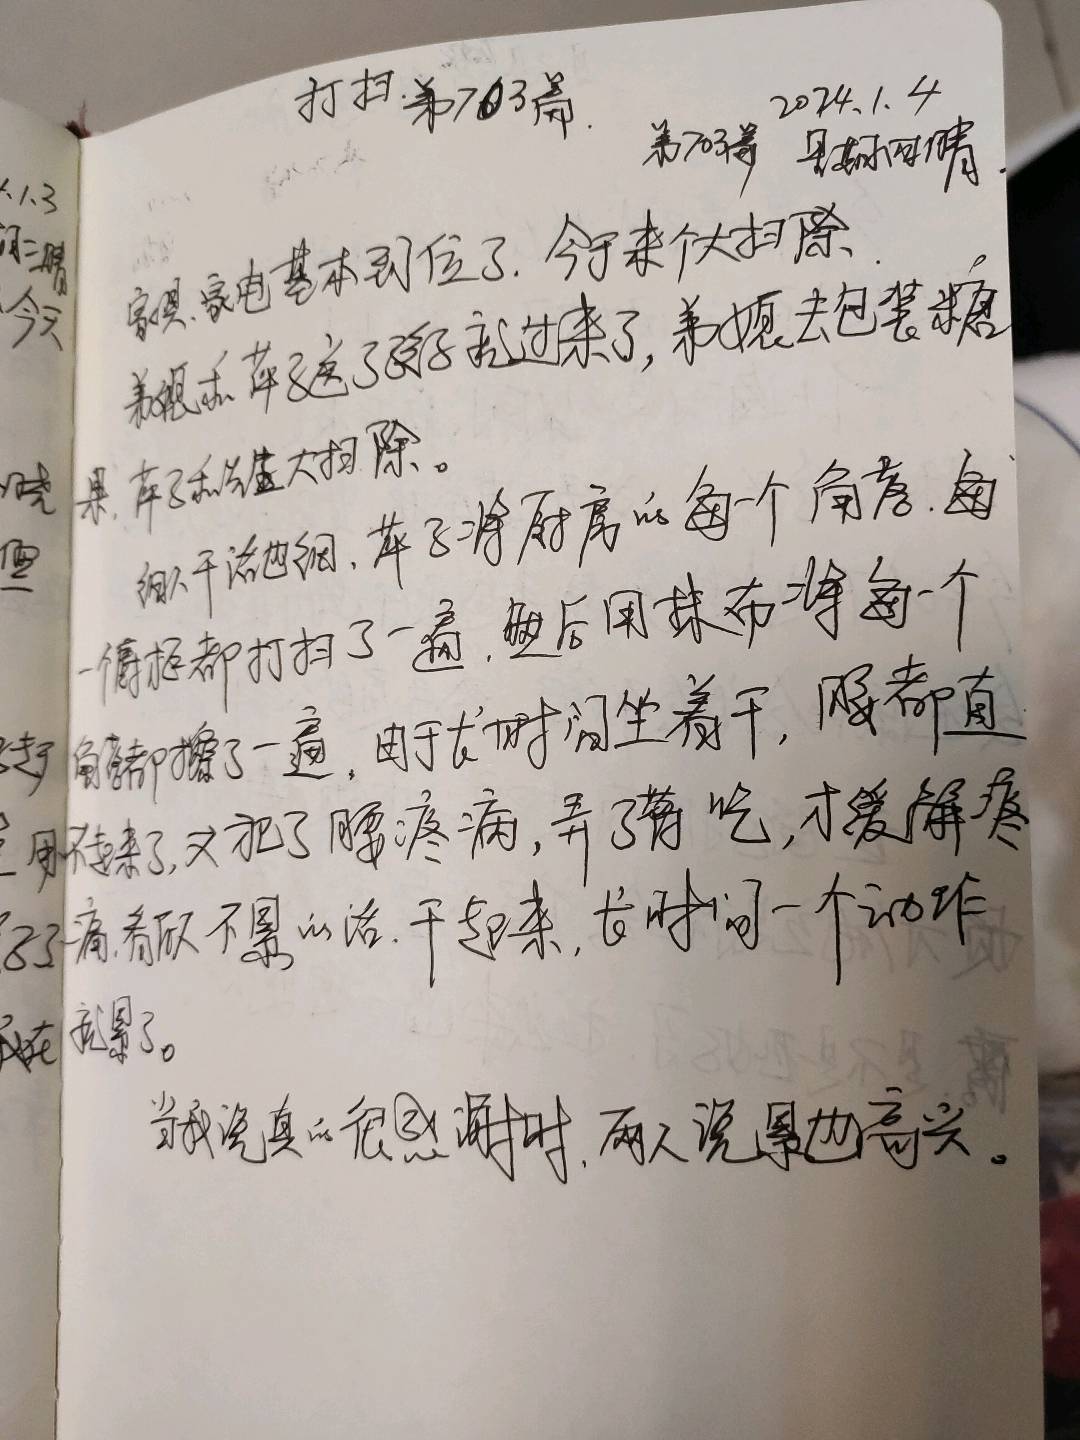 打扫.第703篇.
2024.1.4
第703篇 星期四晴.
家俱、家电基本到位了.今于来个大扫除.
弟媳和萍子送了孩子就过来了,弟媳去包装糖
果.萍子和先生大扫除。
细人干活也细.萍子将厨房的每一个角落.每
一个橱柜都打扫了一遍.然后用抹布将每一个
角落都擦了一遍.由于长时间坐着干,腰都直
不起来了,又犯了腰疼病,弄了药吃,才缓解疼
痛.看似不累的活.干起来,长时间一个动作
就累了。
当我说真的很感谢时.两人说累也高兴。
.1.3
今天
我在